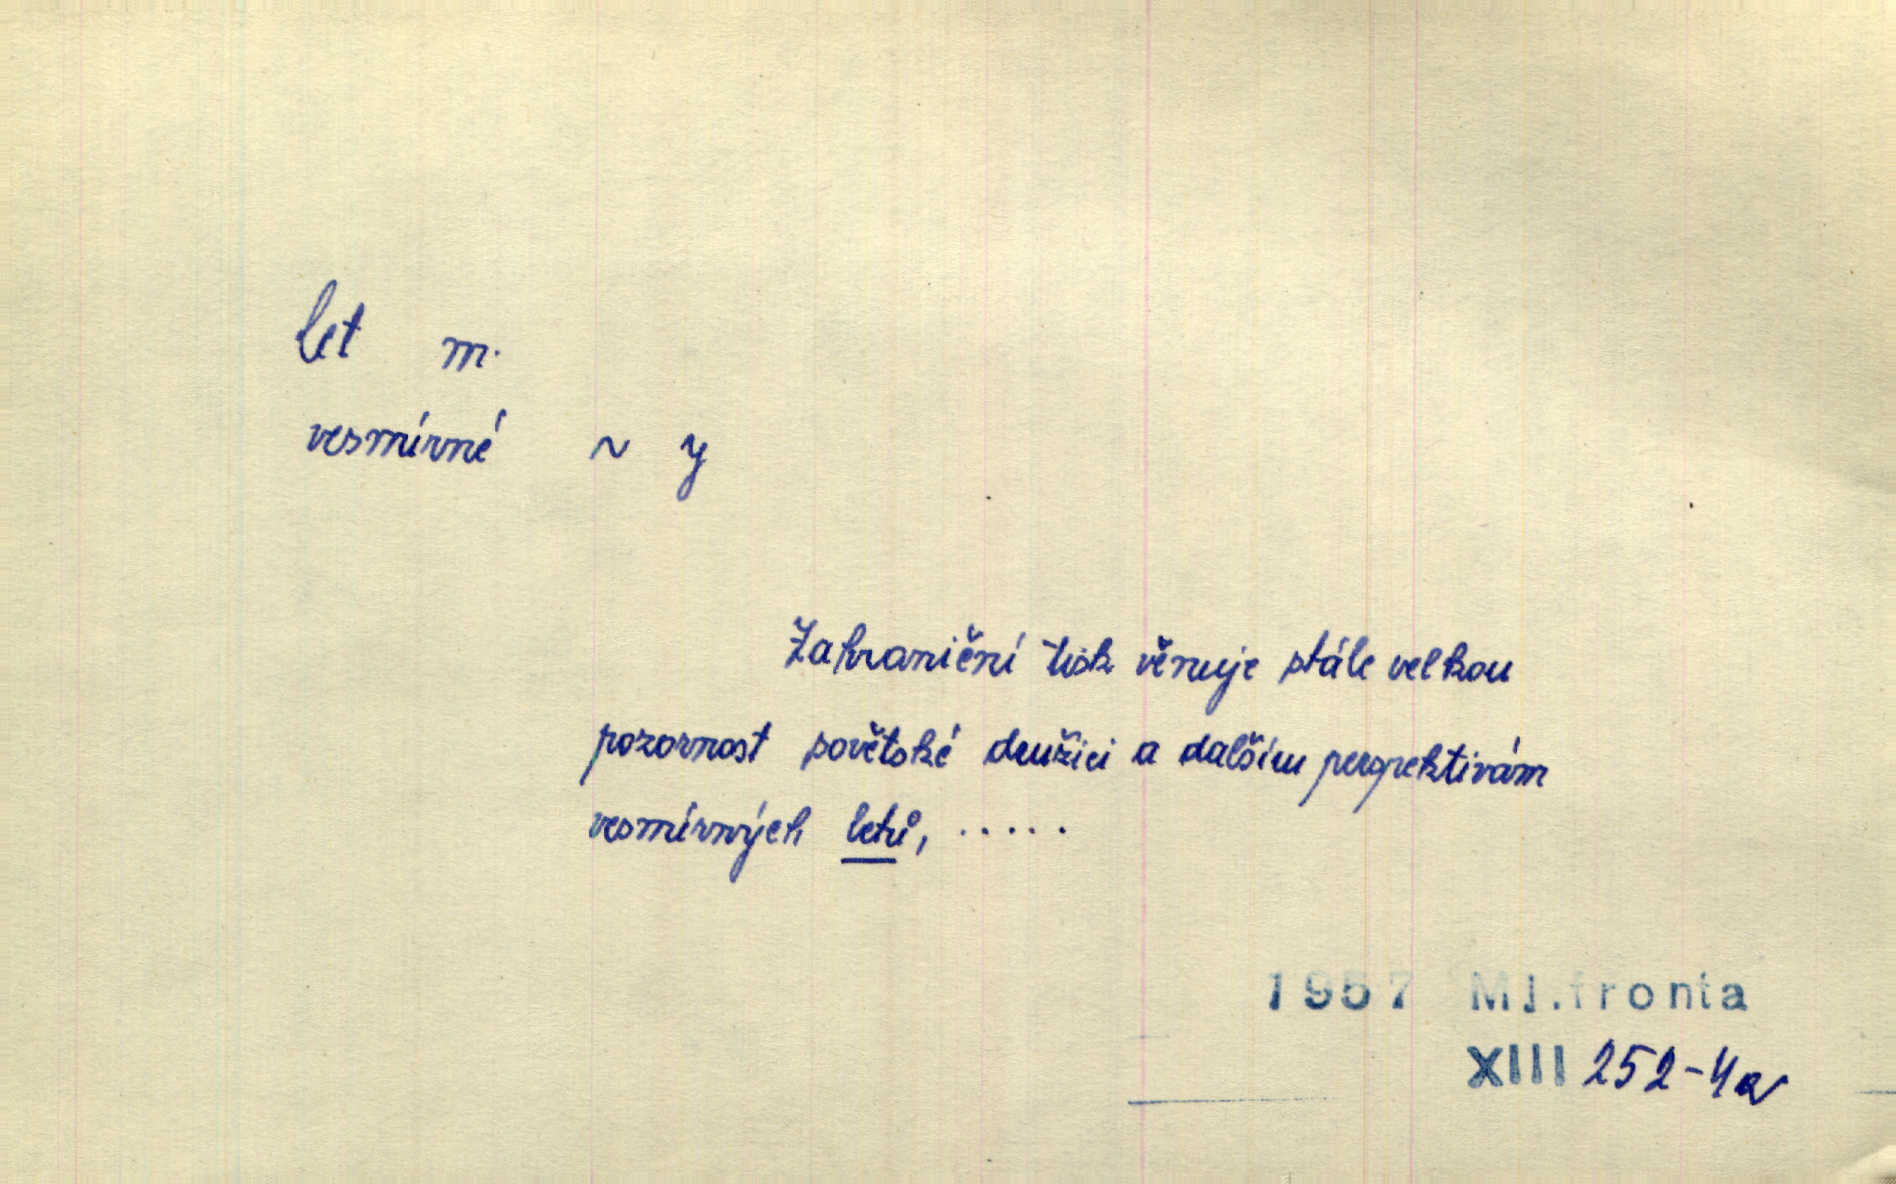 let m.
vesmírné ~ y
Zahraniční tisk věnuje stále velkou
pozornost sovětské družici a dalším perspektivám
vesmírných letů, .....
1957 Ml.fronta
XIII 252-4a